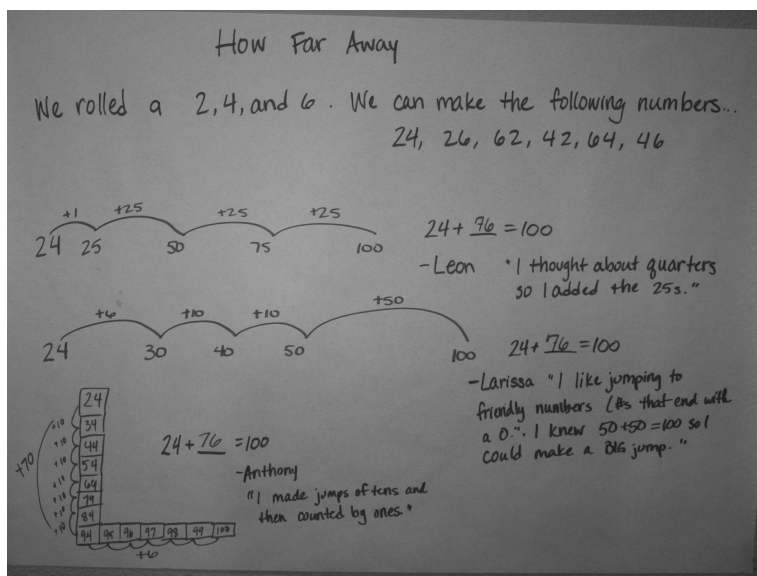 How Far Away
We rolled a 2, 4, and 6. We can make the following numbers...
24, 26, 62, 42, 64, 46
+1 +25 +25 +25
24 25 50 75 100
24 + 76 = 100
-Leon "I thought about quarters
so I added the 25s."
+6 +10 +10 +50
24 30 40 50 100
24 + 76 = 100
-Larissa "I like jumping to
friendly numbers (#s that end with
a 0.". I knew 50 +50 = 100 so I
could make a BIG jump."
24
+10 34
+10 44
+10 54
+70 +10 64
+10 74
+10 84
+10 94 95 96 97 98 99 100
+6
24 + 76 = 100
-Anthony
"I made jumps of tens and
then counted by ones."